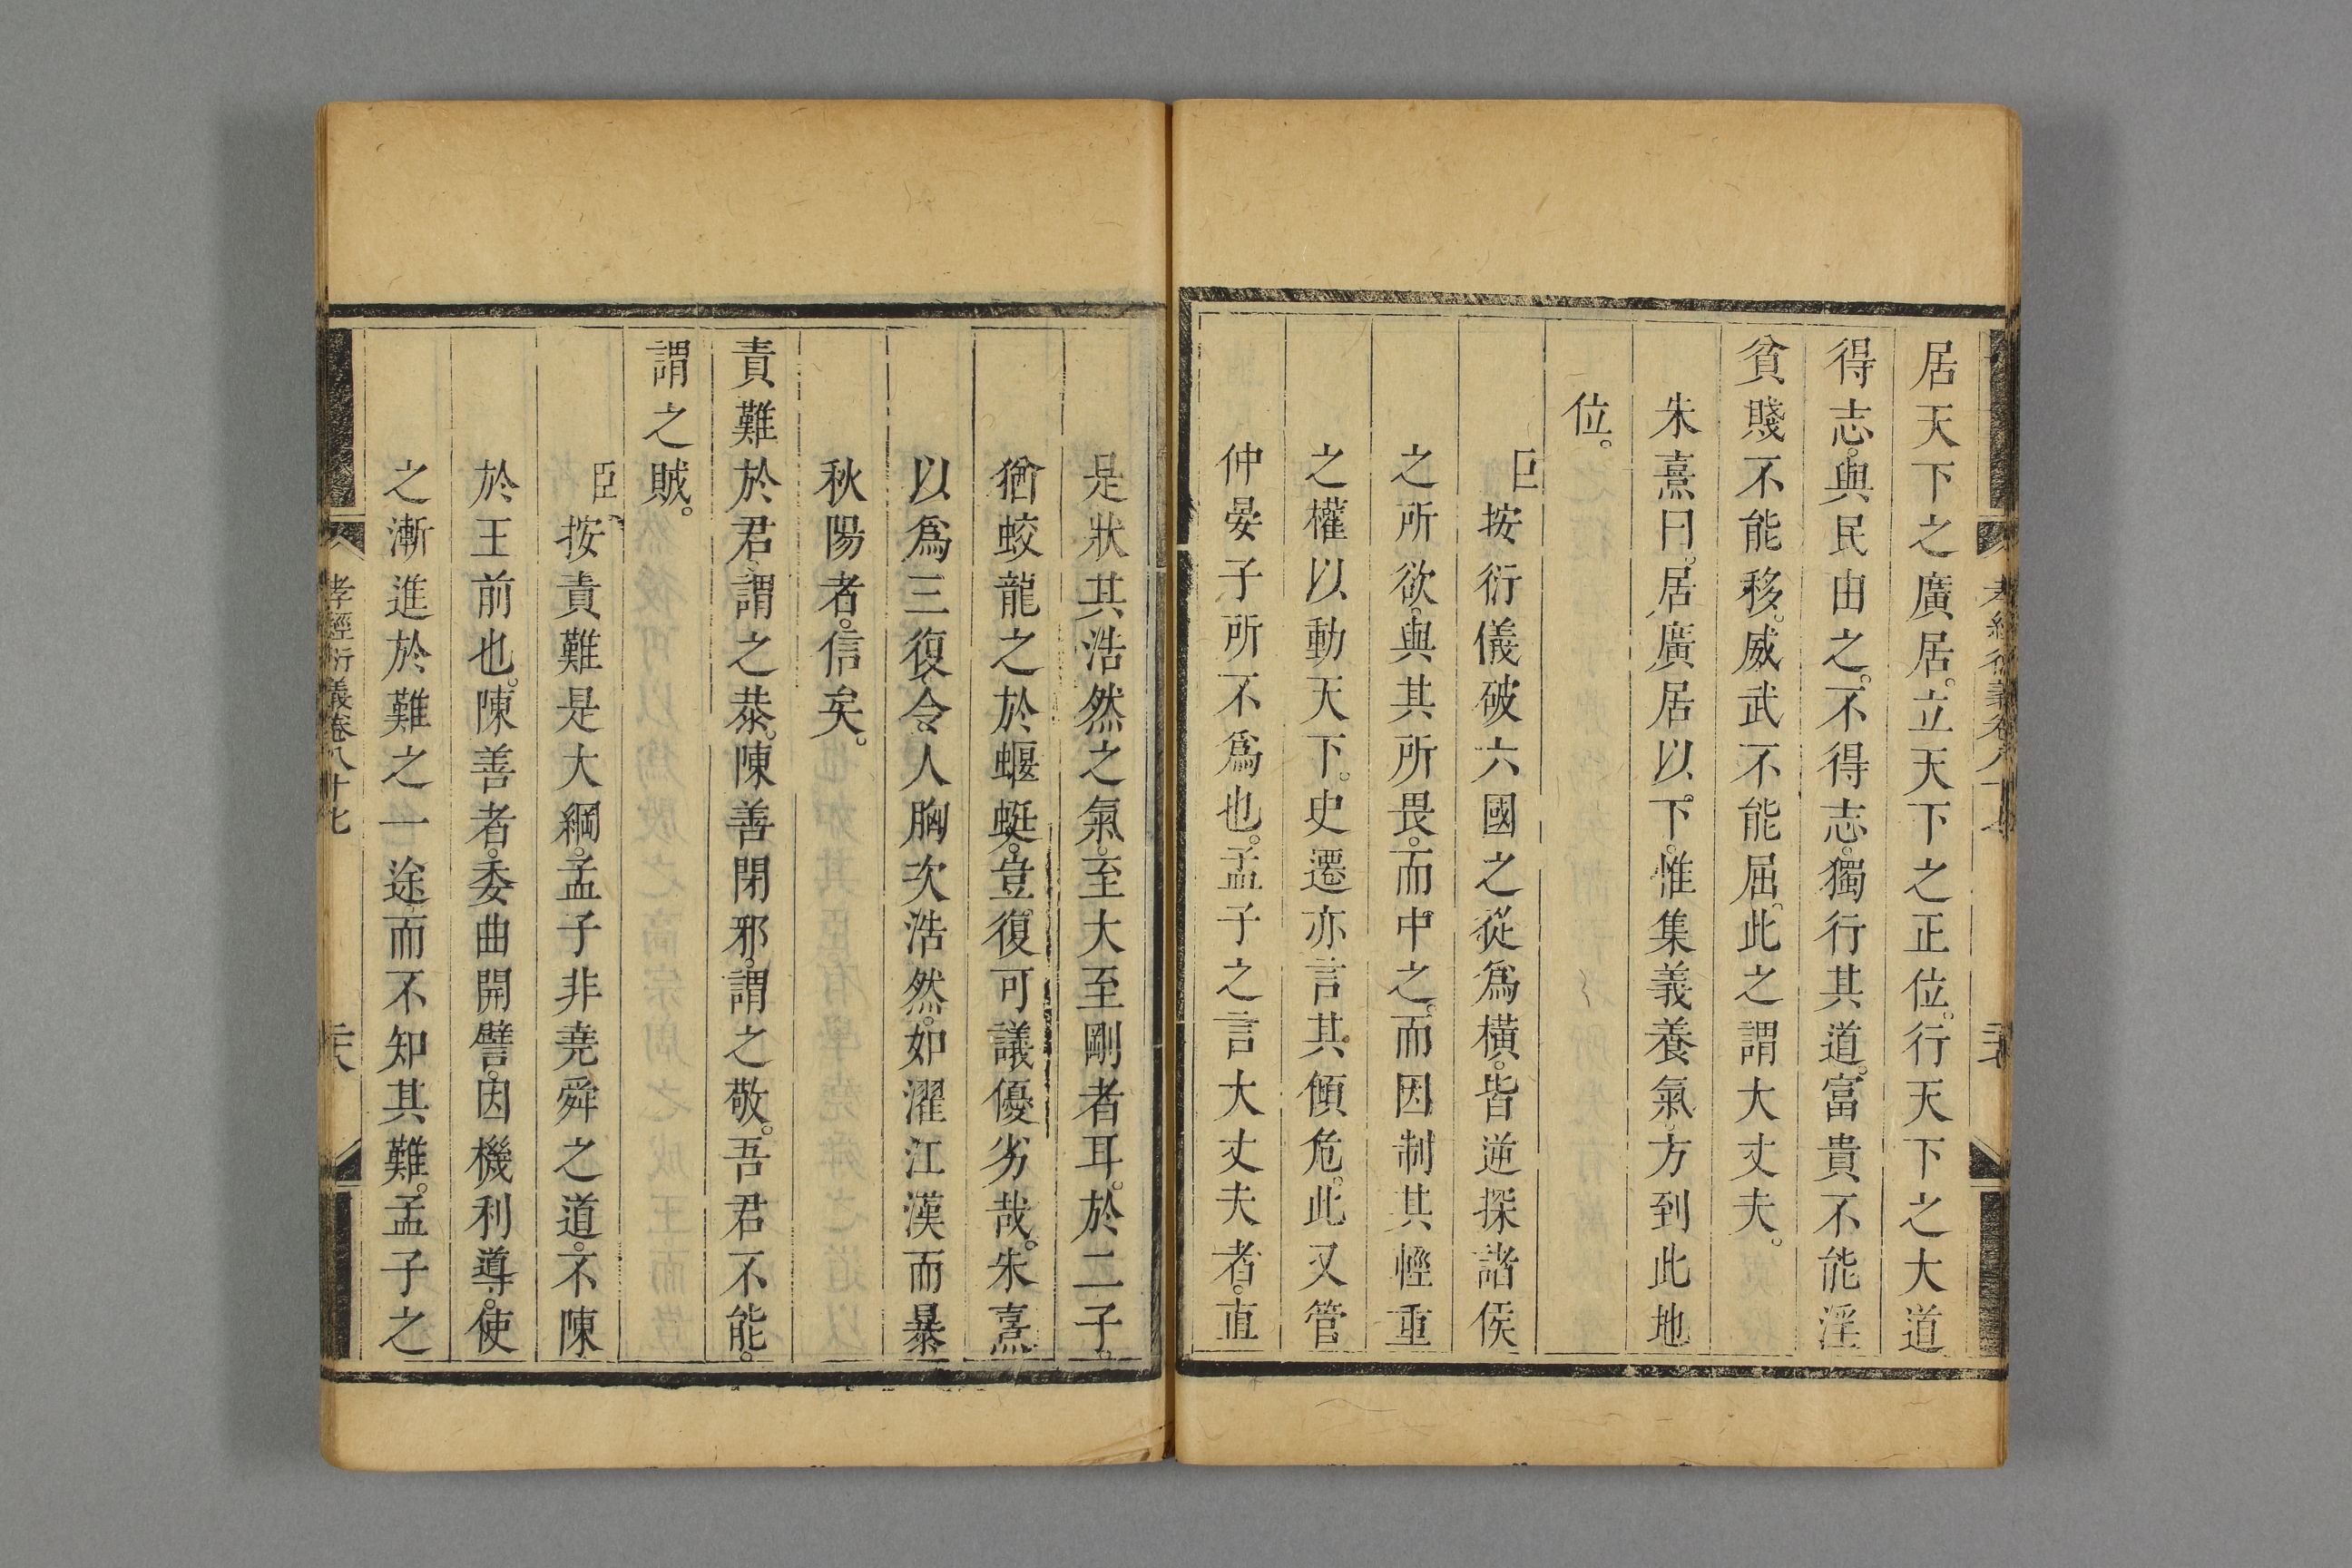 居天下之廣居。立天下之正位。行天下之大道
得志。與民由之。不得志。獨行其道。富貴不能淫
貧賤不能移。威武不能屈。此之謂大丈夫。
朱熹曰。居廣居以下。惟集義養氣。方到此地
位。
臣按衍儀破六國之從爲橫。皆逆探諸侯
之所欲。與其所畏。而中之。而因制其輕重
之權以動天下。史遷亦言其傾危。此又管
仲晏子所不爲也。孟子之言大丈夫者。直
是狀其浩然之氣。至大至剛者耳。於二子。
猶蛟龍之於蝘蜓。豈復可議優劣哉。朱熹
以爲三復。令人胸次浩然。如濯江漢而暴
秋陽者。信矣。
責難於君。謂之恭。陳善閉邪。謂之敬。吾君不能。
謂之賊。
臣按責難是大綱。孟子非堯舜之道。不陳
於王前也。陳善者。委曲開譬。因機利導。使
之漸進於難之一途。而不知其難。孟子之
孝經衍義卷八十七